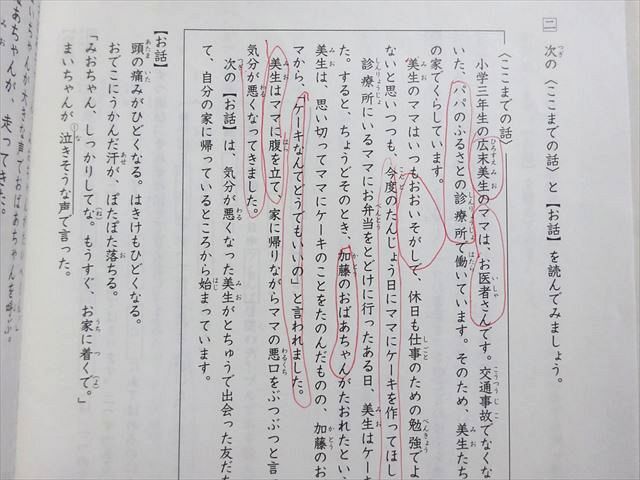 二 次の〈ここまでの話〉と【お話】を読んでみましょう。
〈ここまでの話〉
小学三年生の広末美生のママは、お医者さんです。交通事故でなくな
いた、パパのふるさとの診療所で働いています。そのため、美生たち
の家でくらしています。
美生のママはいつもおおいそがしで、休日も仕事のための勉強でよ
ないと思いつつも、今度のたんじょう日にママにケーキを作ってほし
診療所にいるママにお弁当をとどけに行ったある日、美生はケーキ
た。すると、ちょうどそのとき、加藤のおばあちゃんがたおれたとい
美生は、思い切ってママにケーキのことをたのんだものの、加藤のお
マから、「ケーキなんてどうでもいいの」と言われました。
美生はママに腹を立て、家に帰りながらママの悪口をぶつぶつと言
気分が悪くなってきました。
次の【お話】は、気分が悪くなった美生がとちゅうで出会った友だち
て、自分の家に帰っているところから始まっています。
【お話】
頭の痛みがひどくなる。はきけもひどくなる。
おでこにうかんだ汗が、ぽたぽた落ちる。
「みおちゃん、しっかりしてな。もうすぐ、お家に着くで。」
まいちゃんが泣きそうな声で言った。
いちゃんが大きな声でおばあちゃんを呼ぶ。
あちゃんが、走ってきた。